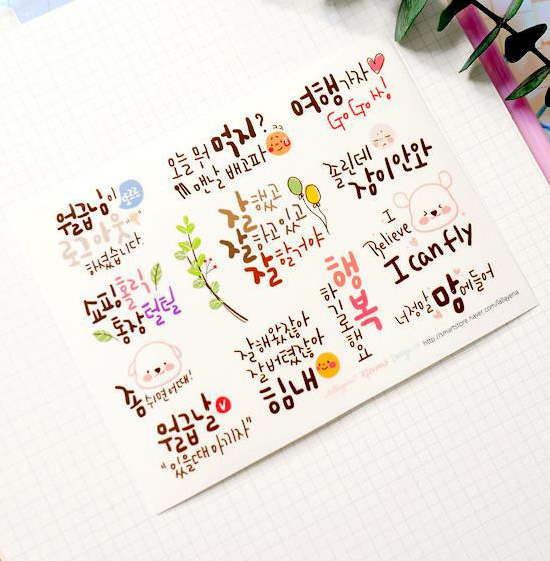 여행 가자
Go Go 씽!
오늘 뭐 먹지?
ㅋㅋ
맨날 배고파
졸린데
잠이안와
월급님이
로그아웃
하셨습니다
잘했고
잘하고있고
잘할거야
I
Believe
I can fly
쇼핑홀릭
통장털털
행복
하기로해요
너정말
맘에들어
http://smartstore.naver.com/lallayena
좀 쉬면어때!
잘해왔잖아
잘버텼잖아
힘내
월급날
"있을때아끼자"